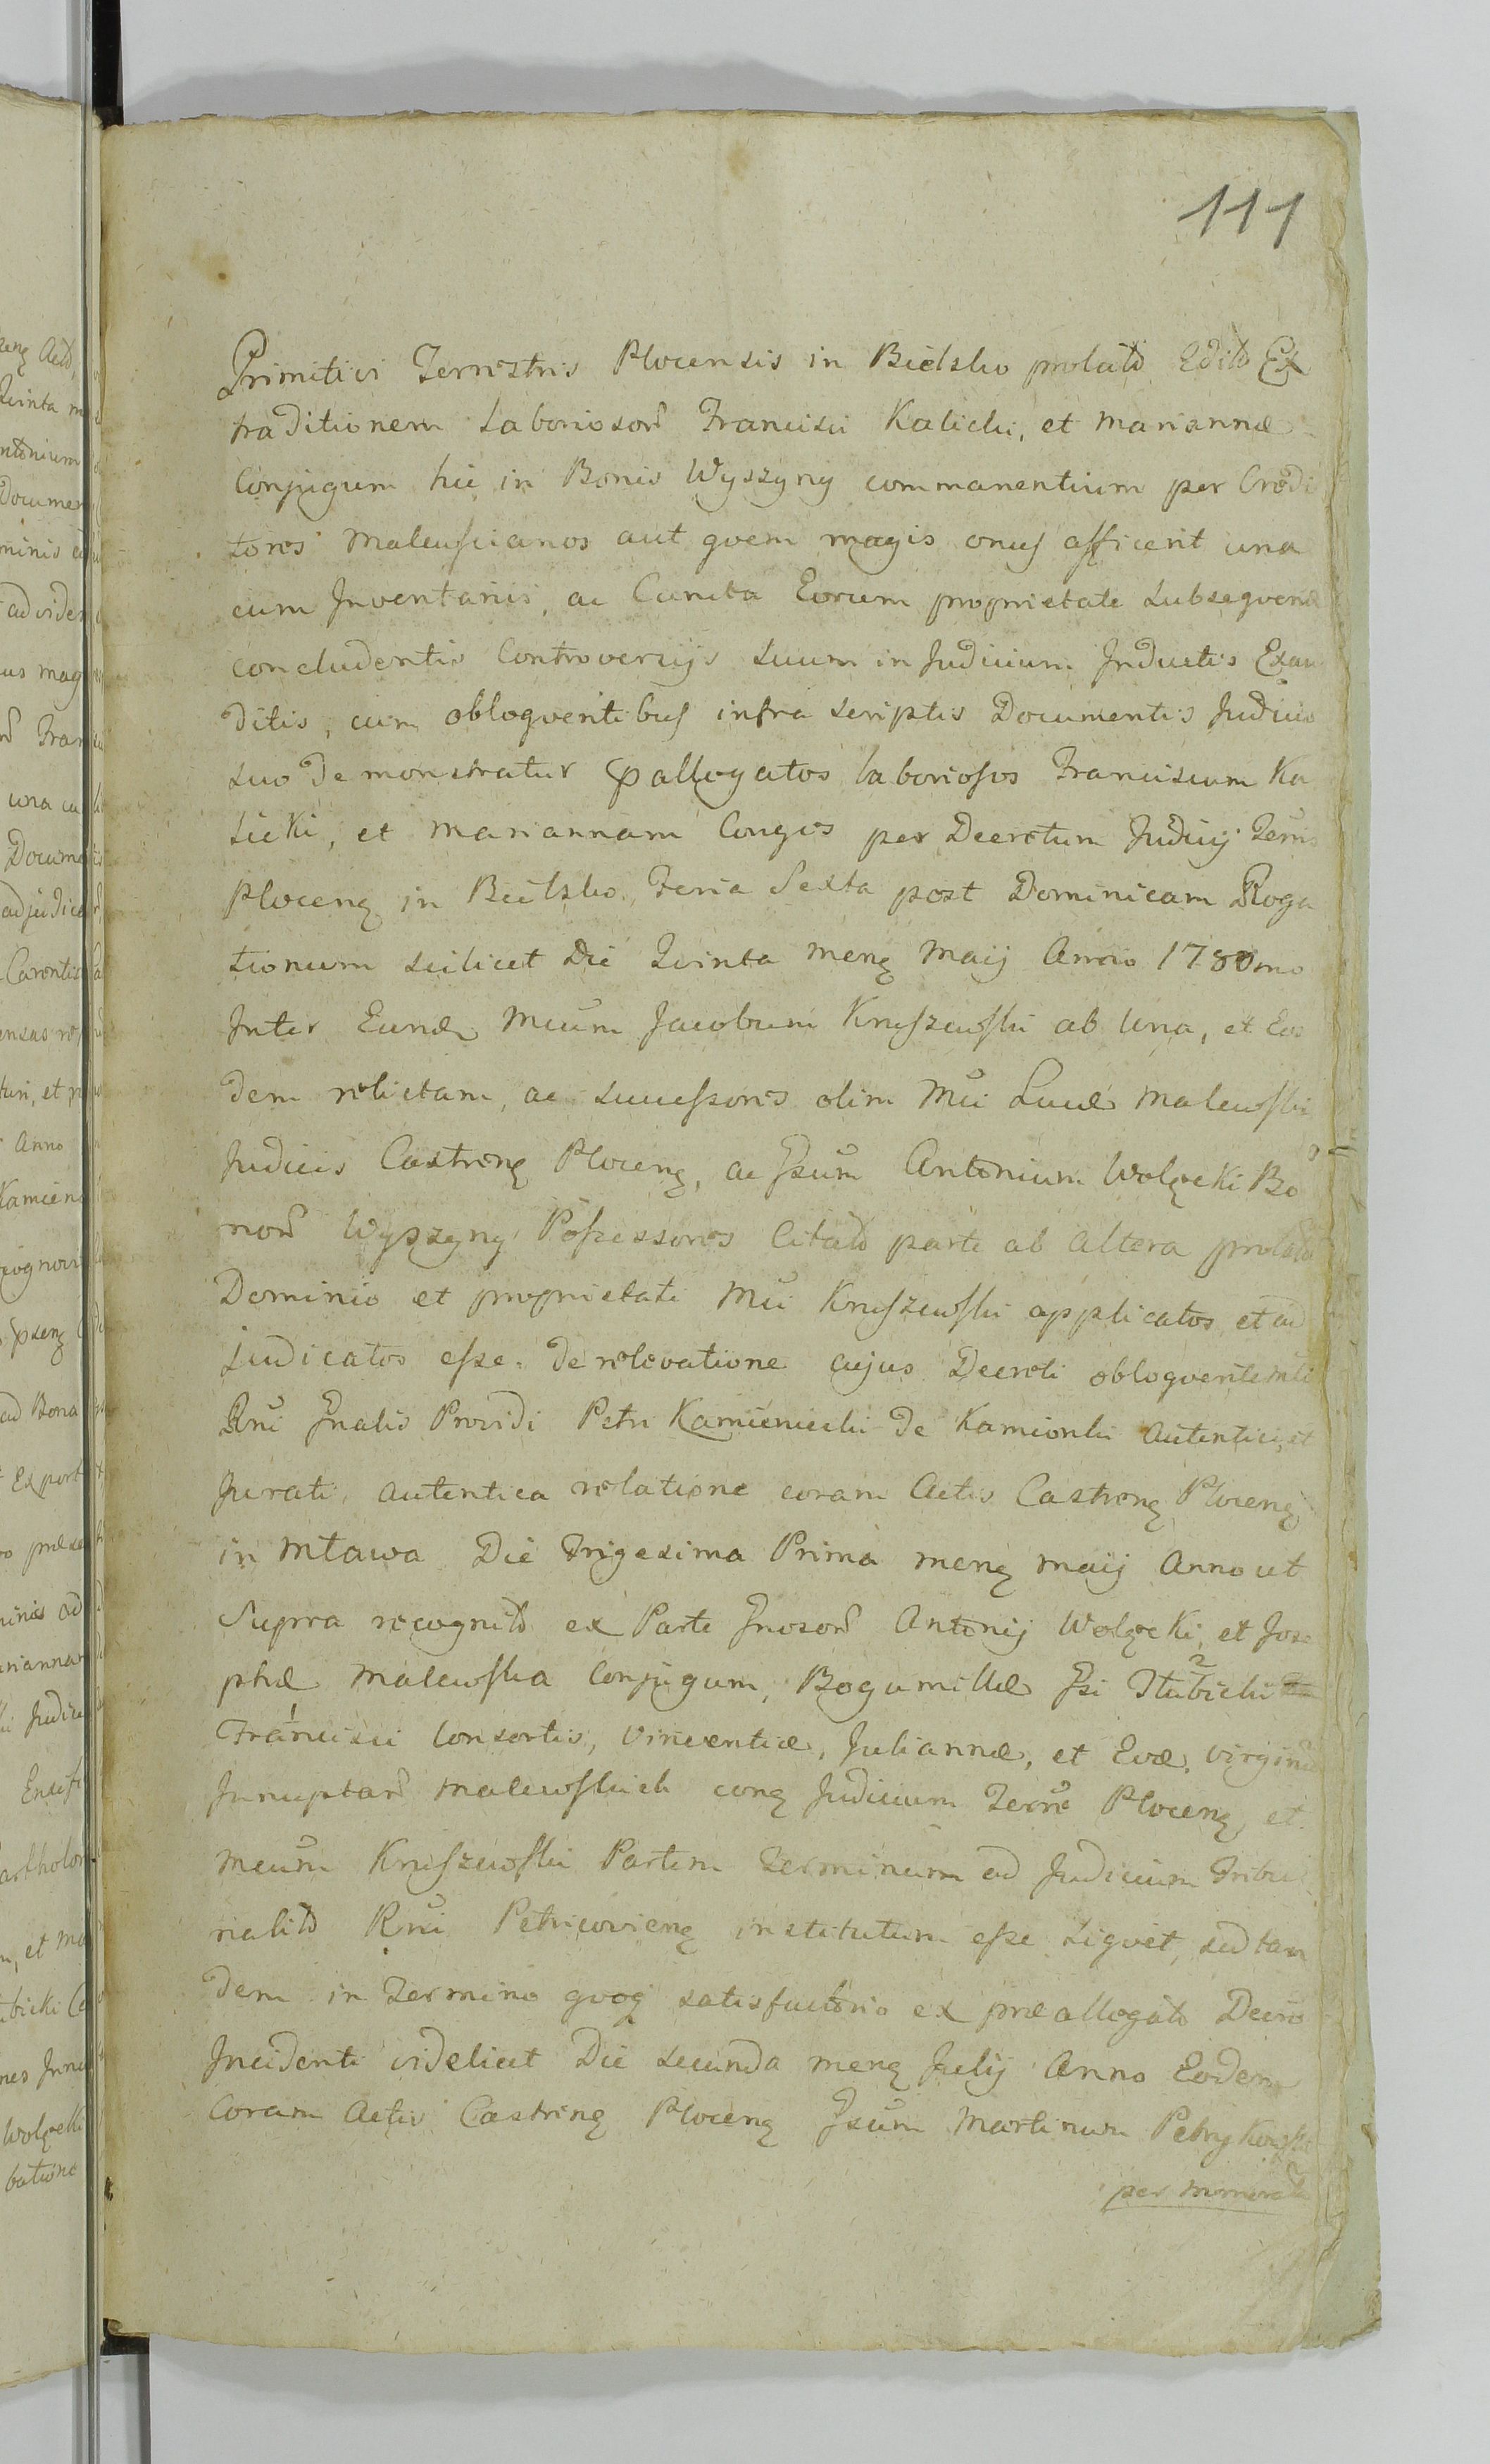 111
Primitivi Terrestris Plocensis in Bielsko prolato Edito Ex
traditionem Laboriosorũ Francisci Kalicki, et Mariannæ
Conjugum hic in Bonis Wyszyny commanentium per Credi
tores Malewscianos aut quem magis onus afficerit una
cum Inventariis, ac Cuncta Eorum proprietate subseqvend
concludentis Controversijs suum in Judicium Inductis Exau
ditis, cum obloqventibus infra scriptis Documentis Judicio
suo demonstratur allegatos laboriosos Franciscum Ka
licki, et Mariannam Conges per Decretum Judicij Terris
Plocenȝ in Bielsko Feria Sexta post Dominicam Roga
tionum scilicet Die Qvinta menȝ Maij Anno 1780mo
Inter Eund Mcũm Jacobum Kruszewski ab Una, et Eos
dem relictam, ac Successores olim Mci Lucæ Malewski
Judicis Castrenȝ Plocenȝ, ac Gsũm Antonium Wolęcki Bo
norũ Wyszyny Possessores Citato parte ab Altera prolatũ
Dominio et proprietati Mci Kruszewski applicatos et ad
judicatos esse. de relevatione cujus Decreti obloqvente
Rni Gnalis Providi Petri Kamienicki de Kamionki Autentici, et
Jurati, autentica relatione coram Actis Castrenȝ Plocenȝ
in Mława Die Trigesima Prima menȝ Maij Anno ut
Supra recognito ex Parte Gnosorũ Antonij Wolęcki, et Jose
phæ Malewska Conjugum, Bogumillæ Gsi Ilubicki 2
1 Francisci Consortis, Vincentiæ, Juliannæ, et Evæ, Virginũ
Innuptarũ Malewskich conȝ Judicium Terrẽ Plocenȝ et
Mcũm Kruszewski Partem Terminum ad Judicium Tribu
nalito Rni Petricovienȝ institutum esse liqvet, sed tan
dem in Termino qvoqȝ satisfactorio ex præallegato Decro
Incidenti videlicet Die secunda menȝ Julij Anno Eodem
Coram Actis Castrenȝ Plocenȝ Gsũm Martinum Petrykowski
per